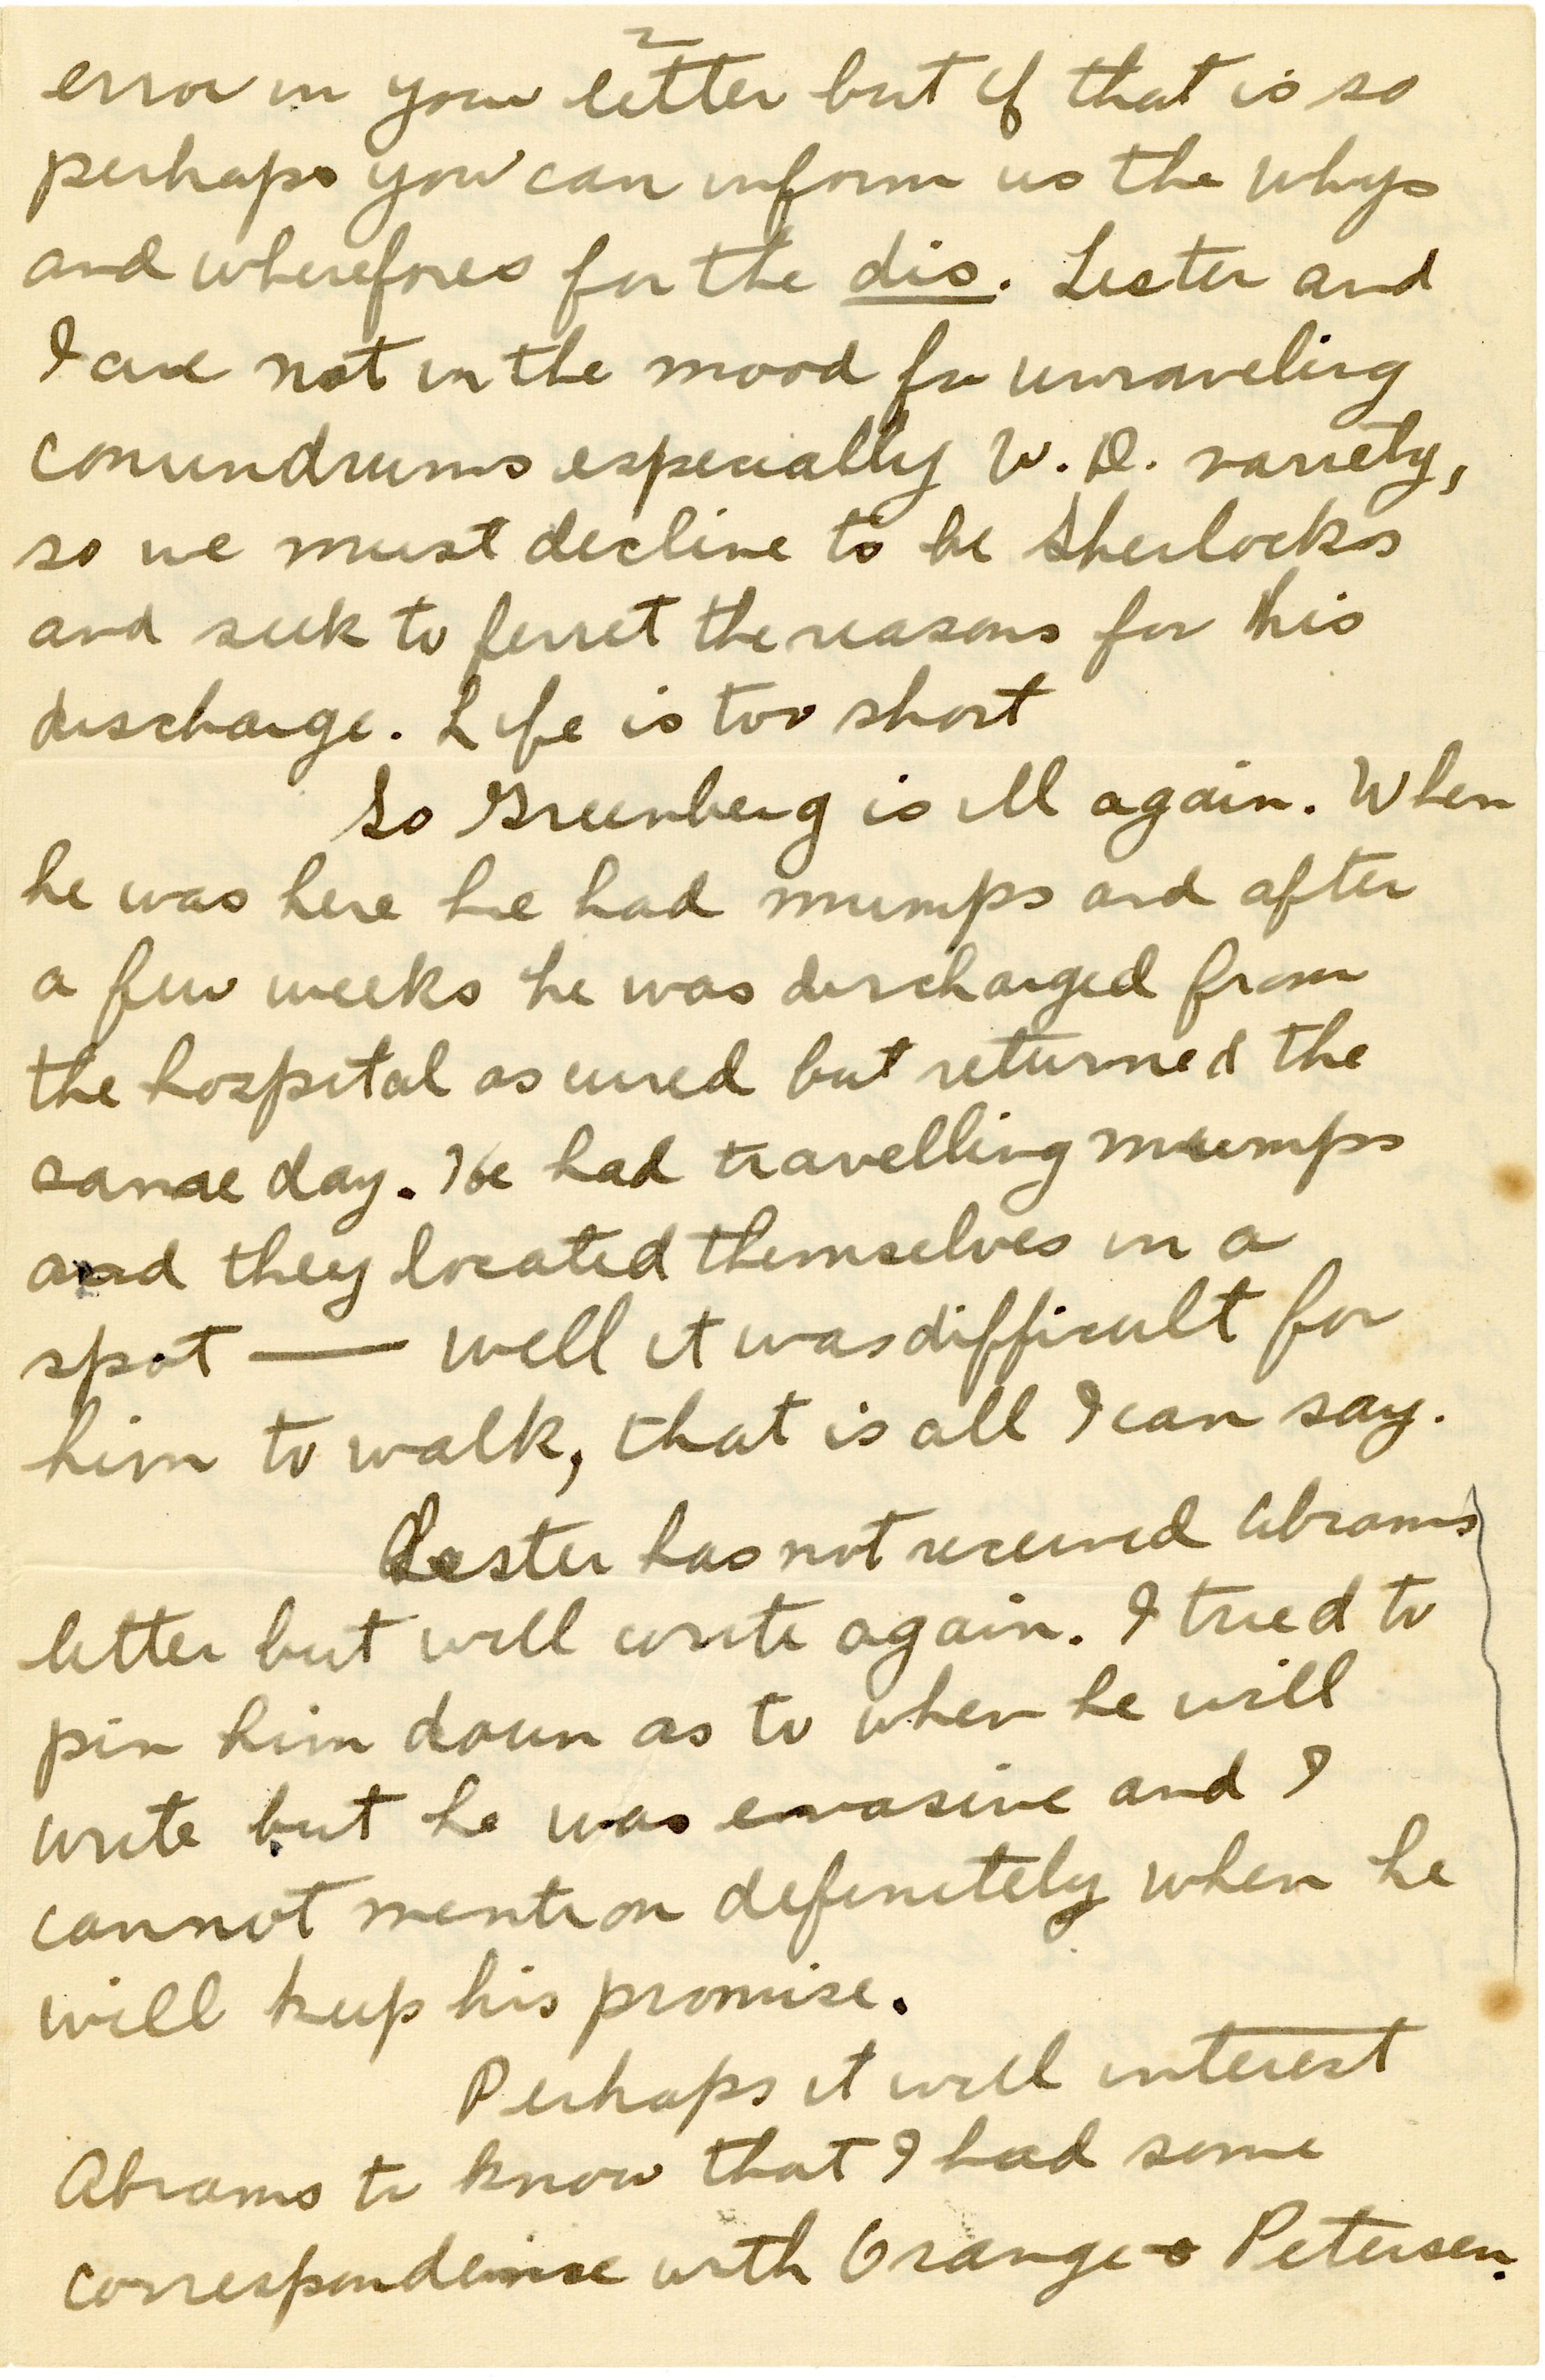 2
error in your letter but if that is so
perhaps you can inform us the whys
and wherefores for the dis. Lester and
I are not in the mood for unraveling
conundrums especially W. D. variety,
so we must decline to be Sherlocks
and seek to ferret the reasons for this
discharge. Life is too short
So Greenberg is ill again. When
he was here he had mumps and after
a few weeks he was discharged from
the hospital as cured but returned the
same day. He had travelling mumps
and they located themselves in a
spot — well it was difficult for
him to walk, that is all I can say.
Lester has not received Abrams
letter but will write again. I tried to
pin him down as to when he will
write but he was evasive and I
cannot mention definitely when he
will keep his promise.
Perhaps it will interest
Abrams to know that I had some
correspondence with Orange Petersen.